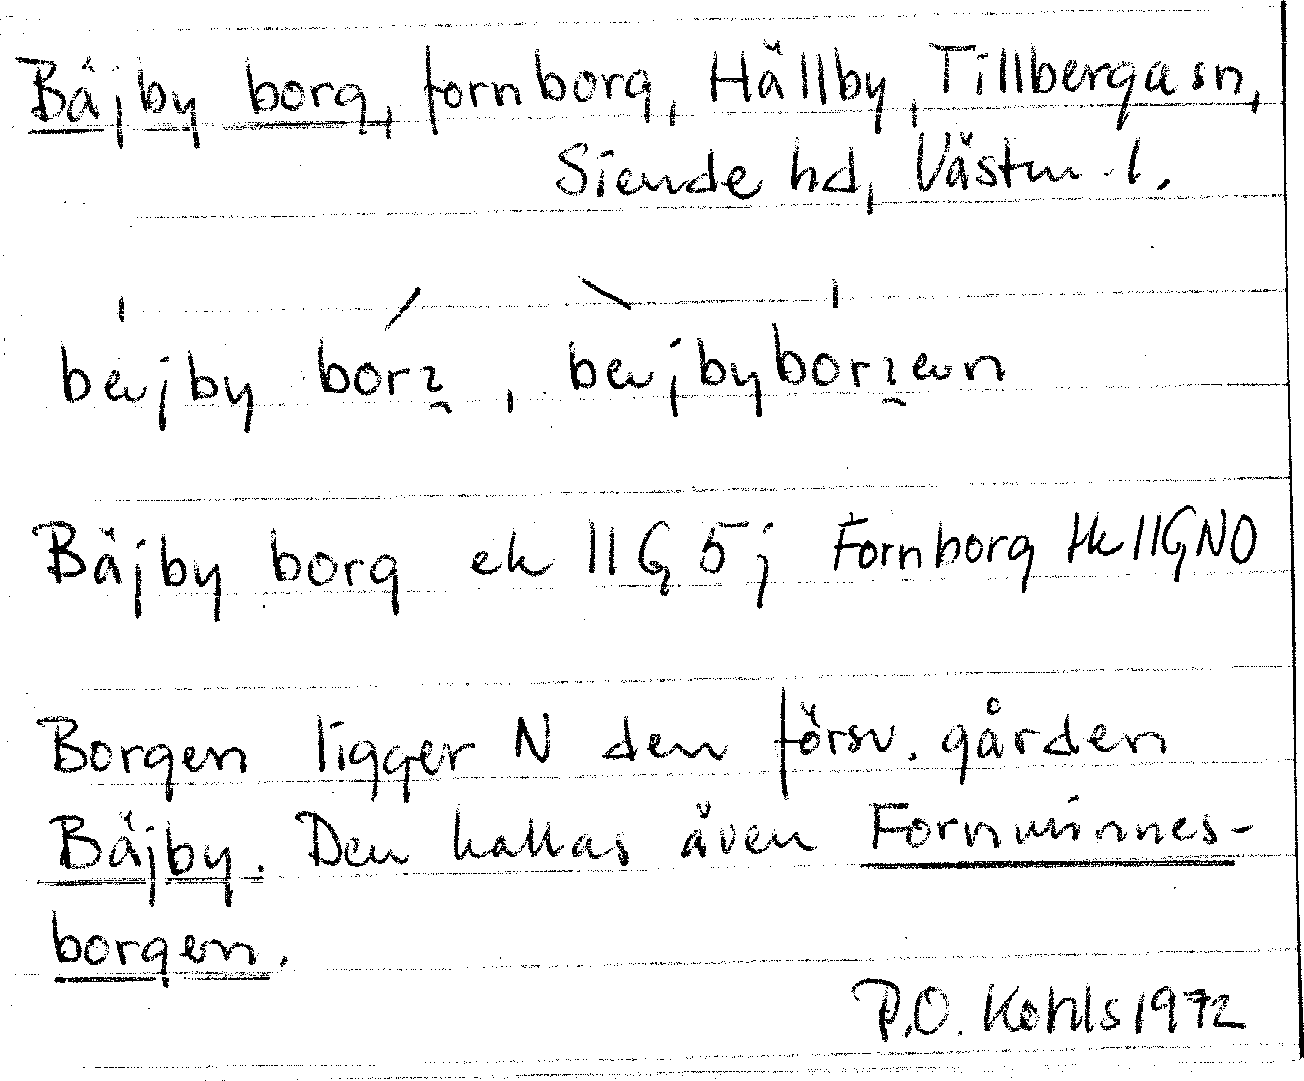 Bäjby borg, fornborg, Hällby, Tillberga sn,
Siende hd, Västm. l.
bejby borg, bejbyborgen
Bäjby borg ek 11G 5j Fornborg Hk 11G NO
Borgen ligger N den försv. gården
Bäjby. Den kallas även Fornminnes-
borgen.
P.O. Kohls 1972